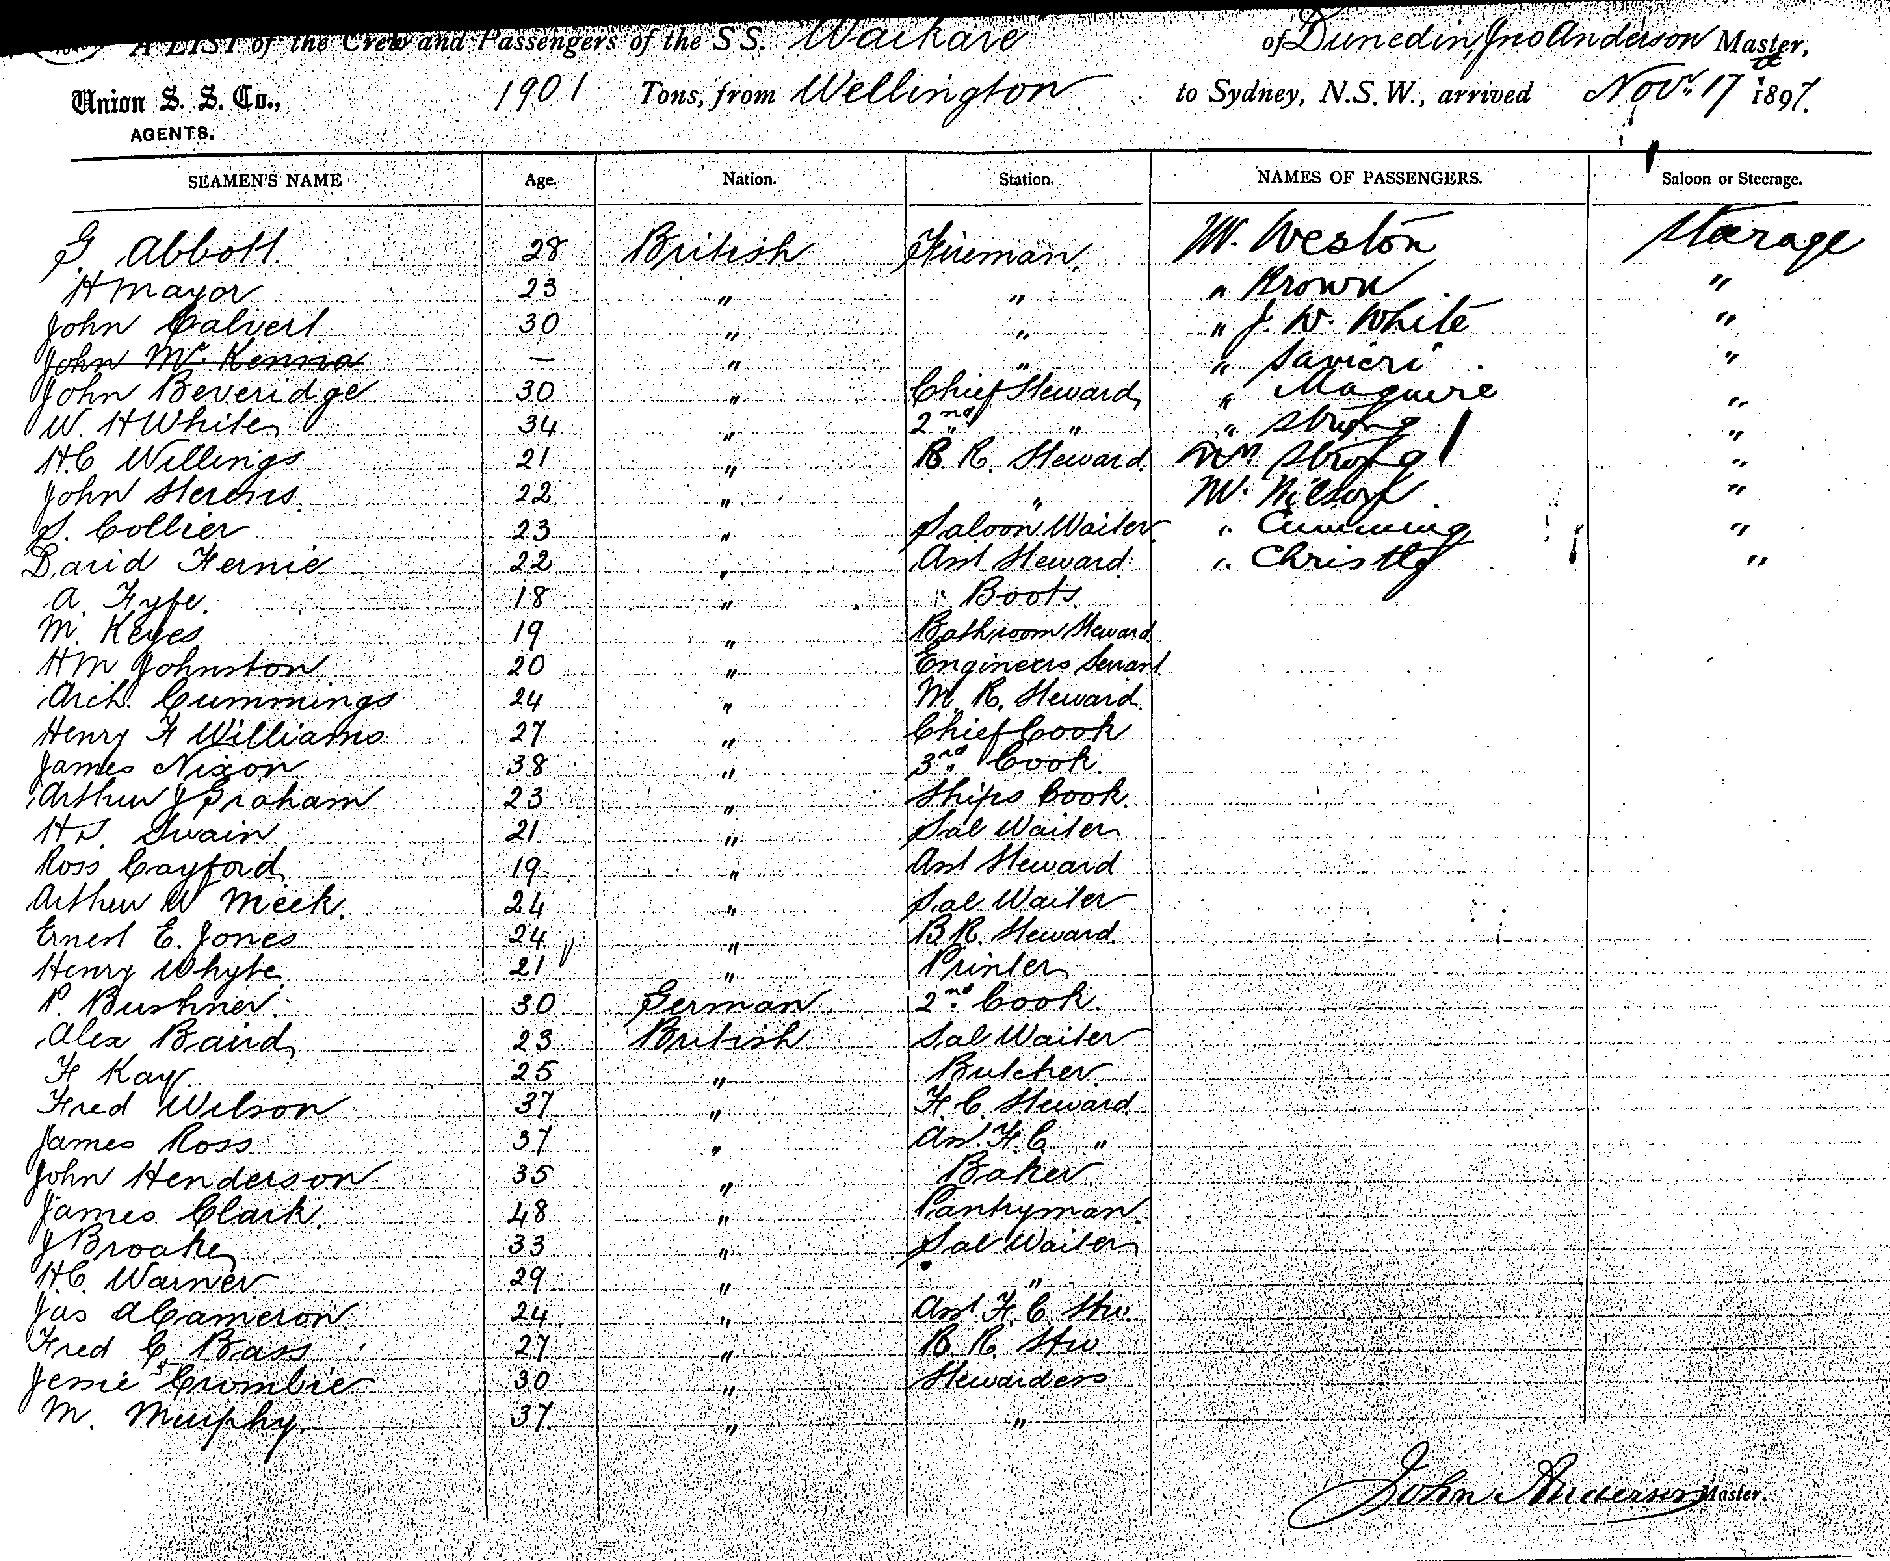 A LIST of the Crew and Passengers of the S S. Waikare of Dunedin, Jno Anderson Master,
Union S. S. Co., 1901 Tons, from Wellington to Sydney, N.S.W., arrived Novr. 17th 1897.
AGENTS.
SEAMEN'S NAME Age. Nation. Station. NAMES OF PASSENGERS. Saloon or Steerage.
G. Abbott 28 British Fireman. Mr. Weston Steerage
H Mayor 23 " " " Brown "
John Calvert 30 " " " J. W. White "
John Mc. Kenna — " " " "
John Beveridge 30 " Chief Steward " Maguire "
W. H White 34 " 2nd " " Strong "
H C Willings 21 " B. R. Steward Strong "
John 22 " " Mr. Wilson "
S. Collier 23 " Saloon Waiter " Cumming "
David Fernie 22 " Asst Steward " Christly "
A. Fyfe. 18 " " Boots.
M. Keyes 19 " Bathroom Steward
H M Johnston 20 " Engineers Servant
Arch. Cummings 24 " M. R. Steward
Henry F Williams 27 " Chief Cook
James Nixon 38 " 3rd Cook.
Arthur J Graham 23 " Ships Cook.
H S. Swain 21 " Sal Waiter
Ross Cayford 19 " Asst Steward
Arthur W Meek. 24 " Sal Waiter
Ernest E. Jones 24 " B R. Steward
Henry Whyte 21 " Printer
P. Bushner. 30 German 2nd Cook.
Alex Baird 23 British Sal Waiter
F Kay 25 " Butcher.
Fred Wilson 37 " F. C. Steward
James Ross 37 " Asst. F. C. "
John Henderson 35 " Baker
James Clark. 48 " Pantryman.
J Broake 33 " Sal Waiter
H. C. Warner 29 " "
Jas A Cameron 24 " Asst F. C. Stw.
Fred C. Bass 27 " B. R. Stw
Jessie Crombie 30 " Stewardess
M. Murphy. 37 " "
John Anderson Master.